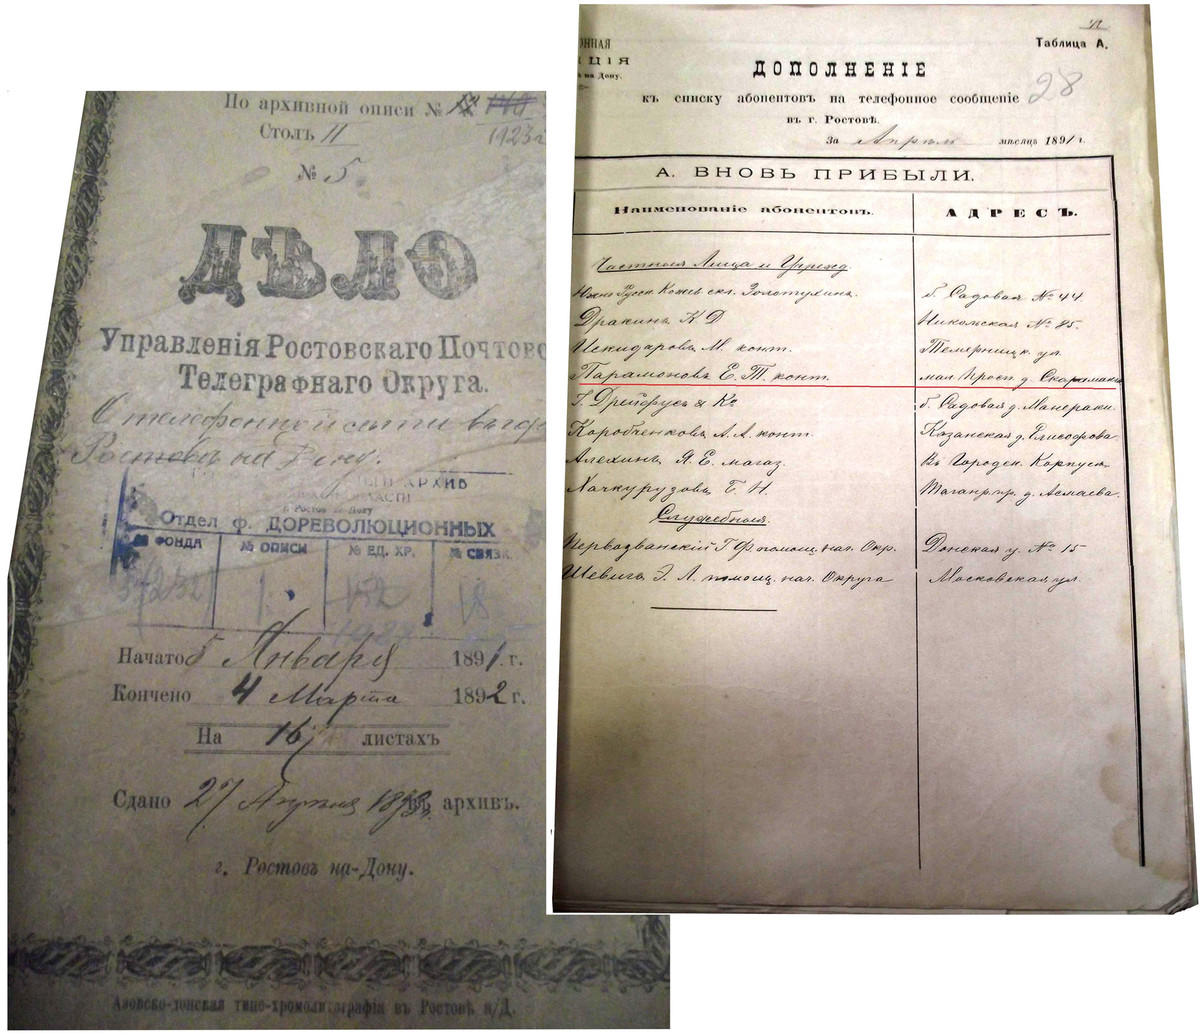 По архивной описи №
1923г
Столъ II
№ 5.
ДѢЛО
Управленія Ростовскаго Почтово
Телеграфнаго Округа.
О телефонной сѣти въ гор
Ростовѣ на Дону.
АРХИВ
ОБЛАСТИ
г. Ростов на Дону
Отдел ф. ДОРЕВОЛЮЦИОННЫХ
№ ФОНДА № ОПИСИ № ЕД. ХР. № СВЯЗК.
1. 152 18
Начато 5 Января 1891 г.
Кончено 4 Марта 1892 г.
На листахъ
Сдано 27 Апрѣля 1893 въ архивъ.
г. Ростовъ на-Дону.
Азовско-донская типо-хромолитографія въ Ростовѣ н/Д.
ОННАЯ
ЦІЯ
на Дону.
Таблица А.
ДОПОЛНЕНІЕ
28
къ списку абонентовъ на телефонное сообщеніе
въ г. Ростовѣ.
За Апрѣль мѣсяцъ 1891 г.
А. ВНОВЬ ПРИБЫЛИ.
Наименованіе абонентовъ. АДРЕСЪ.
Частныя Лица и Учрежд.
Южно Русск. Кожев. скл. Золотухина. б. Садовая № 44.
Дракинъ К. Д Никольская № 85.
Искидаровъ М. конт. Темерницк. ул.
Парамоновъ Е. Т. конт. мал. Просп. д. Скараманга
Г. Дрейфусъ & Ко б. Садовая д. Манераки.
Коробченковъ А. А. конт. Казанская д. Елисофова
Алехинъ Я. Е. магаз. Въ Городск. Корпусѣ
Хачкурузовъ Б. Н. Таганр. пр. д. Асмаева.
Служебныя.
Первозванскій Г. Ф помощ. нач. Окр. Донская у. № 15
Шевичъ Э. Л. помощ. нач. Округа Московская ул.